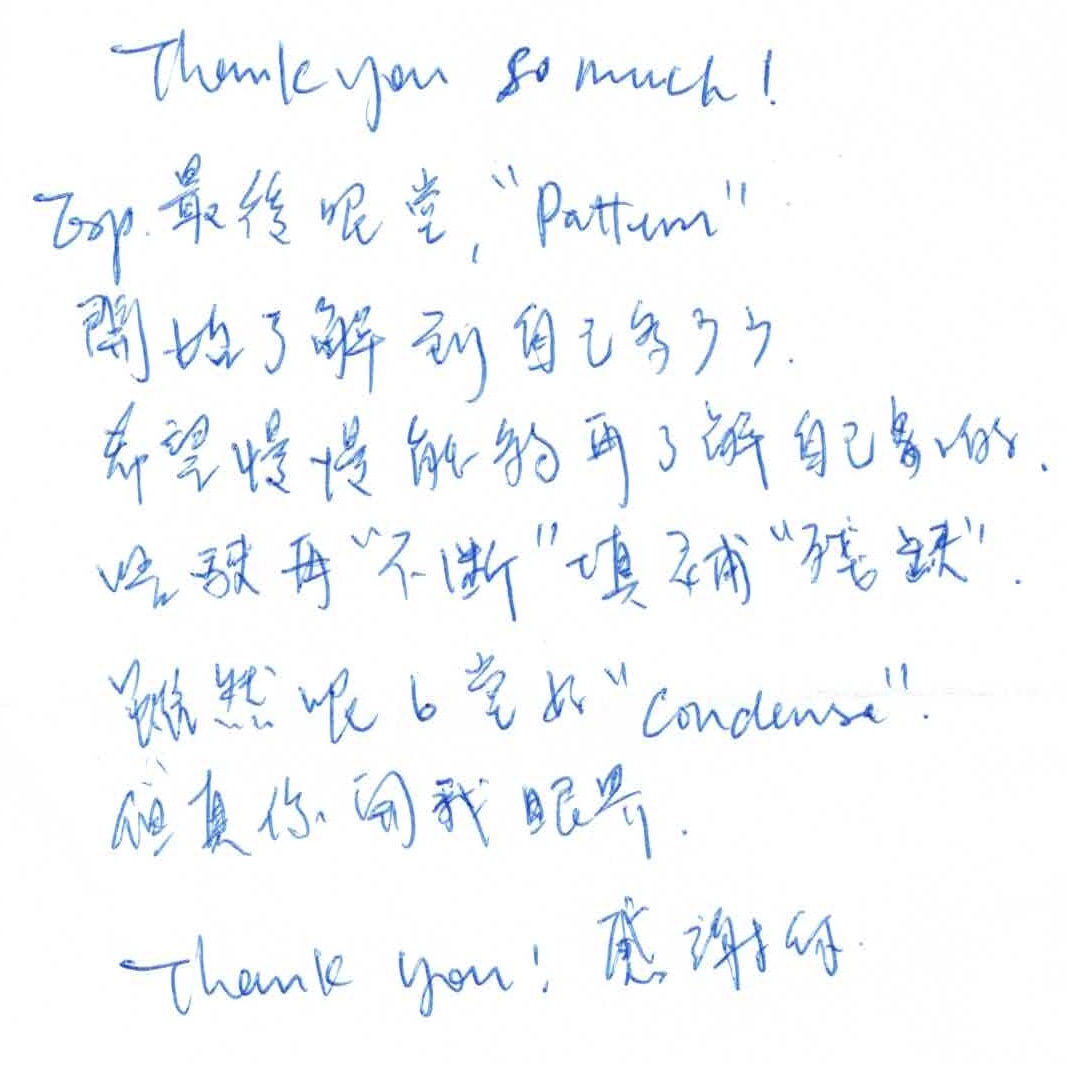 Thank you so much!
Esp. 最後呢堂, "Pattern"
開始了解到自己多少少.
希望慢慢能夠再了解自己多啲.
唔駛再"不斷"填補"殘缺".
雖然呢6堂好"Condense".
但真你開我眼界.
Thank you! 感謝你